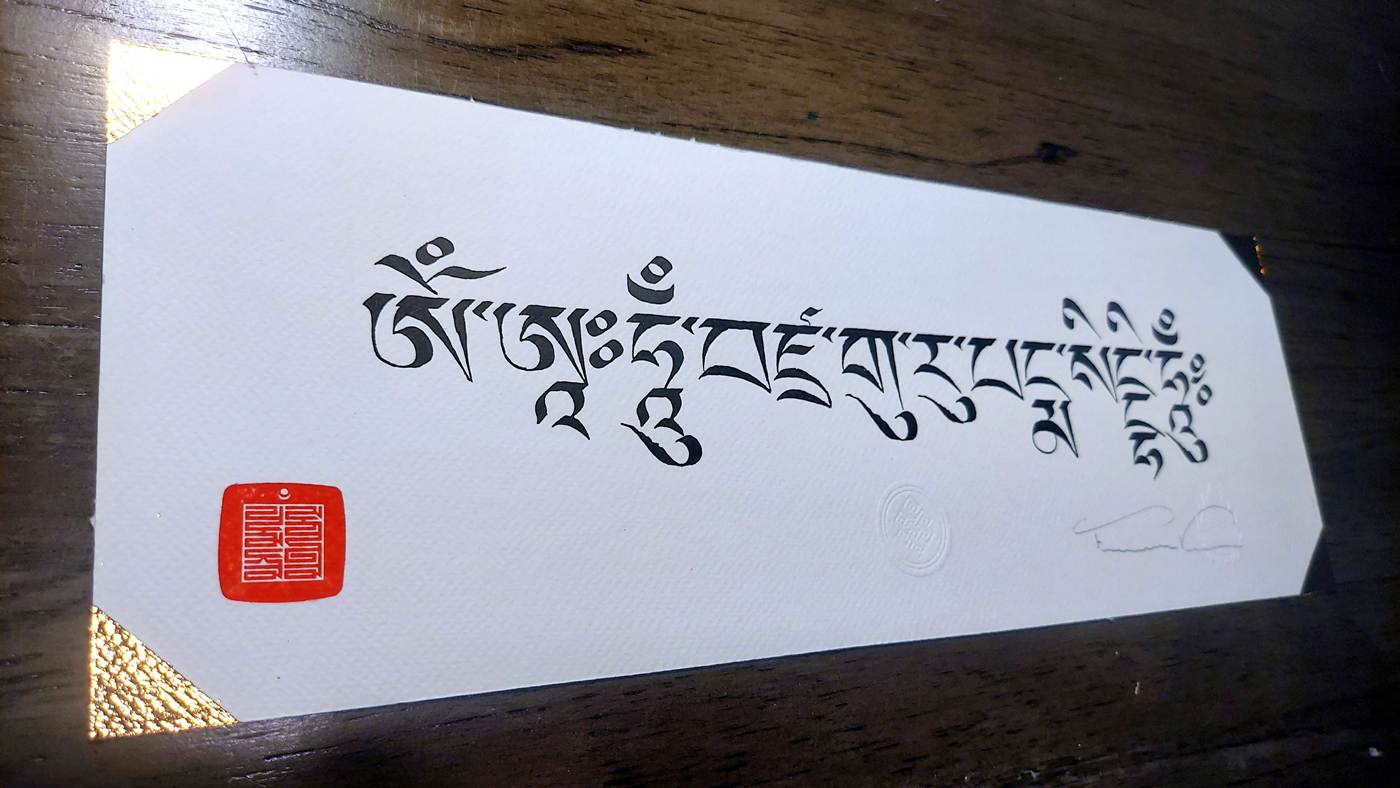 ༀ་ཨཱཿཧཱུྃ་བཛྲ་གུ་རུ་པདྨ་སིདྡྷི་ཧཱུྃ༔